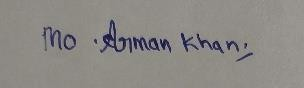 Mo. Arman Khan.